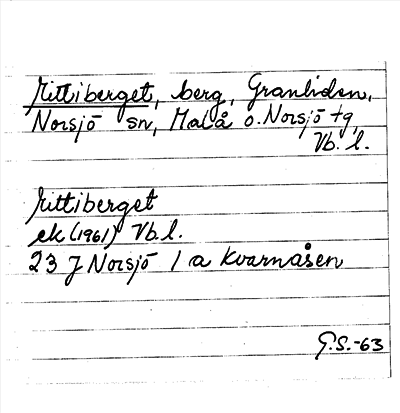 Mittiberget, berg, Granliden,
Norsjö sn, Malå o. Norsjö tg,
Vb. l.
Mittiberget
ek (1961) Vb. l.
23 J Norsjö 1 a Kvarnåsen
G.S.-63